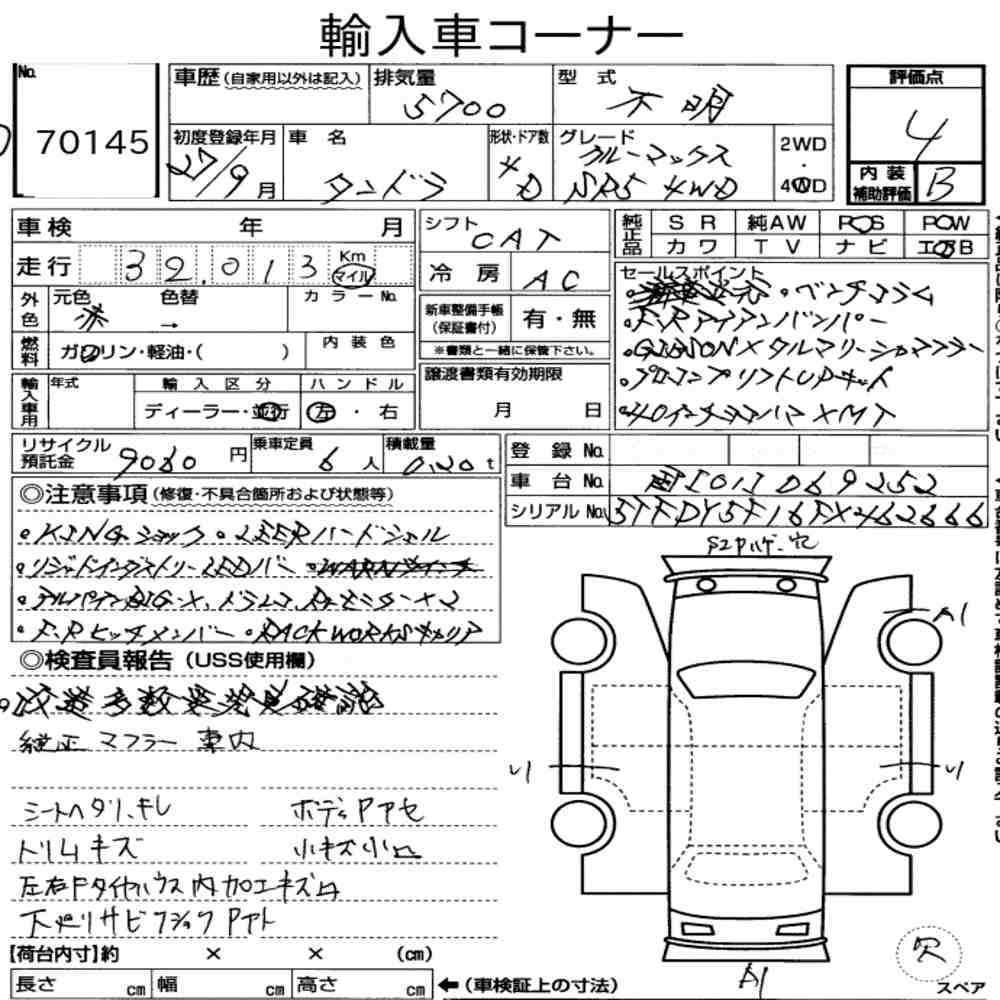 輸入車コーナー
No. 70145
車歴 (自家用以外は記入)
排気量 5700
型式 不明
評価点 4
初度登録年月 27/9月
車名 タンドラ
形状・ドア数 4D
グレード クルーマックス SR5 4WD
2WD・4WD
内装補助評価 B
車検 年 月
シフト CAT
純正品 SR 純AW PS PW
カワ TV ナビ エアB
走行 32,013 Km マイル
冷房 AC
外色 元色 赤 色替 → カラーNo.
新車整備手帳(保証書付) 有・無
※書類と一緒に保管下さい。
燃料 ガソリン・軽油・( ) 内装色
輸入車用 年式 輸入区分 ディーラー・並行 ハンドル 左・右
譲渡書類有効期限 月 日
セールスポイント
・ベンチコラム
・F.Rアイアンバンパー
・GIBSONメタルマリーシャマフラー
・プロコンプリフトUPキット
・40インチヨコハマ XMT
リサイクル預託金 9060円
乗車定員 6人
積載量 0.20t
登録No.
車台No. 国[01]069252
シリアルNo. 5TFDY5F16FX462666
◎注意事項 (修復・不具合箇所および状態等)
・KINGショック・LEERハードシェル
・リジットインダストリーLEDバー ・WARNウインチ
・アルパインBIG-X、ドラレコ、Rモニター×2
・F.Rヒッチメンバー・RACK WORKSキャリア
◎検査員報告 (USS使用欄)
・改造多数要発見確認
純正マフラー車内
シートヘタリ、キレ
ボディPアセ
トリムキズ
小キズ小凹
左右Fタイヤハウス内加工キズ凹
下廻りサビ フショク Pアト
A1
リ
リ
A1
欠
スペア
【荷台内寸】約 × × (cm)
長さ cm 幅 cm 高さ cm
←(車検証上の寸法)